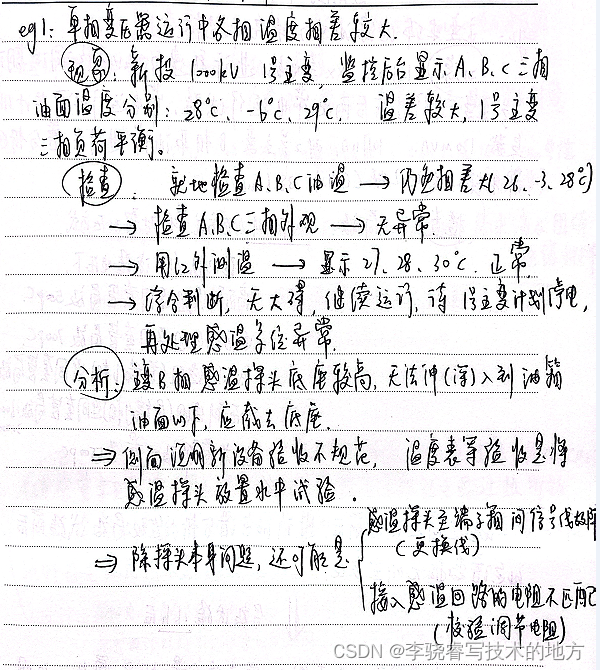 eg1: 单相变压器运行中各相温度相差较大.
现象: 新投 1000kV 1号主变, 监控后台显示A、B、C三相
油面温度分别: 28°C、-6°C、29°C. 温差较大, 1号主变
三相负荷平衡。
检查: 就地检查A、B、C油温 → 仍色相差大(26、-3、28°C)
→ 检查A、B、C三相外观 → 无异常.
→ 用红外测温 → 显示27、28、30°C. 正常
→ 综合判断, 无大碍, 继续运行, 待1号主变计划停电,
再处理感温系统异常.
分析: 主变B相感温探头底座较高, 无法伸(深)入到油箱
油面以下, 应截去底座.
⇒ 侧面说明新设备验收不规范, 温度表等验收是将
感温探头放置水平试验.
⇒ 除探头本身问题, 还可能是
感温探头至端子箱间信号线故障
(更换线)
接入感温回路的电阻不匹配
(校验调节电阻)
CSDN @李骁睿写技术的地方